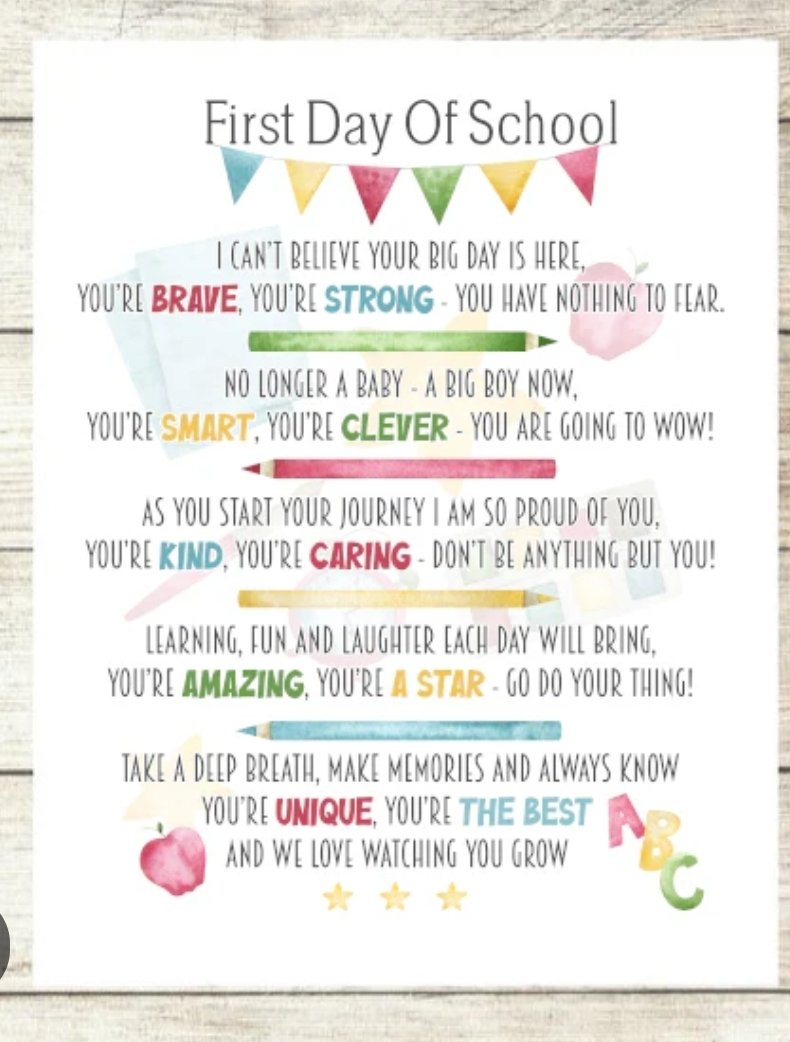 First Day Of School
I CAN'T BELIEVE YOUR BIG DAY IS HERE,
YOU'RE BRAVE, YOU'RE STRONG - YOU HAVE NOTHING TO FEAR.
NO LONGER A BABY - A BIG BOY NOW,
YOU'RE SMART, YOU'RE CLEVER - YOU ARE GOING TO WOW!
AS YOU START YOUR JOURNEY I AM SO PROUD OF YOU,
YOU'RE KIND, YOU'RE CARING - DON'T BE ANYTHING BUT YOU!
LEARNING, FUN AND LAUGHTER EACH DAY WILL BRING,
YOU'RE AMAZING, YOU'RE A STAR - GO DO YOUR THING!
TAKE A DEEP BREATH, MAKE MEMORIES AND ALWAYS KNOW
YOU'RE UNIQUE, YOU'RE THE BEST
AND WE LOVE WATCHING YOU GROW
ABC